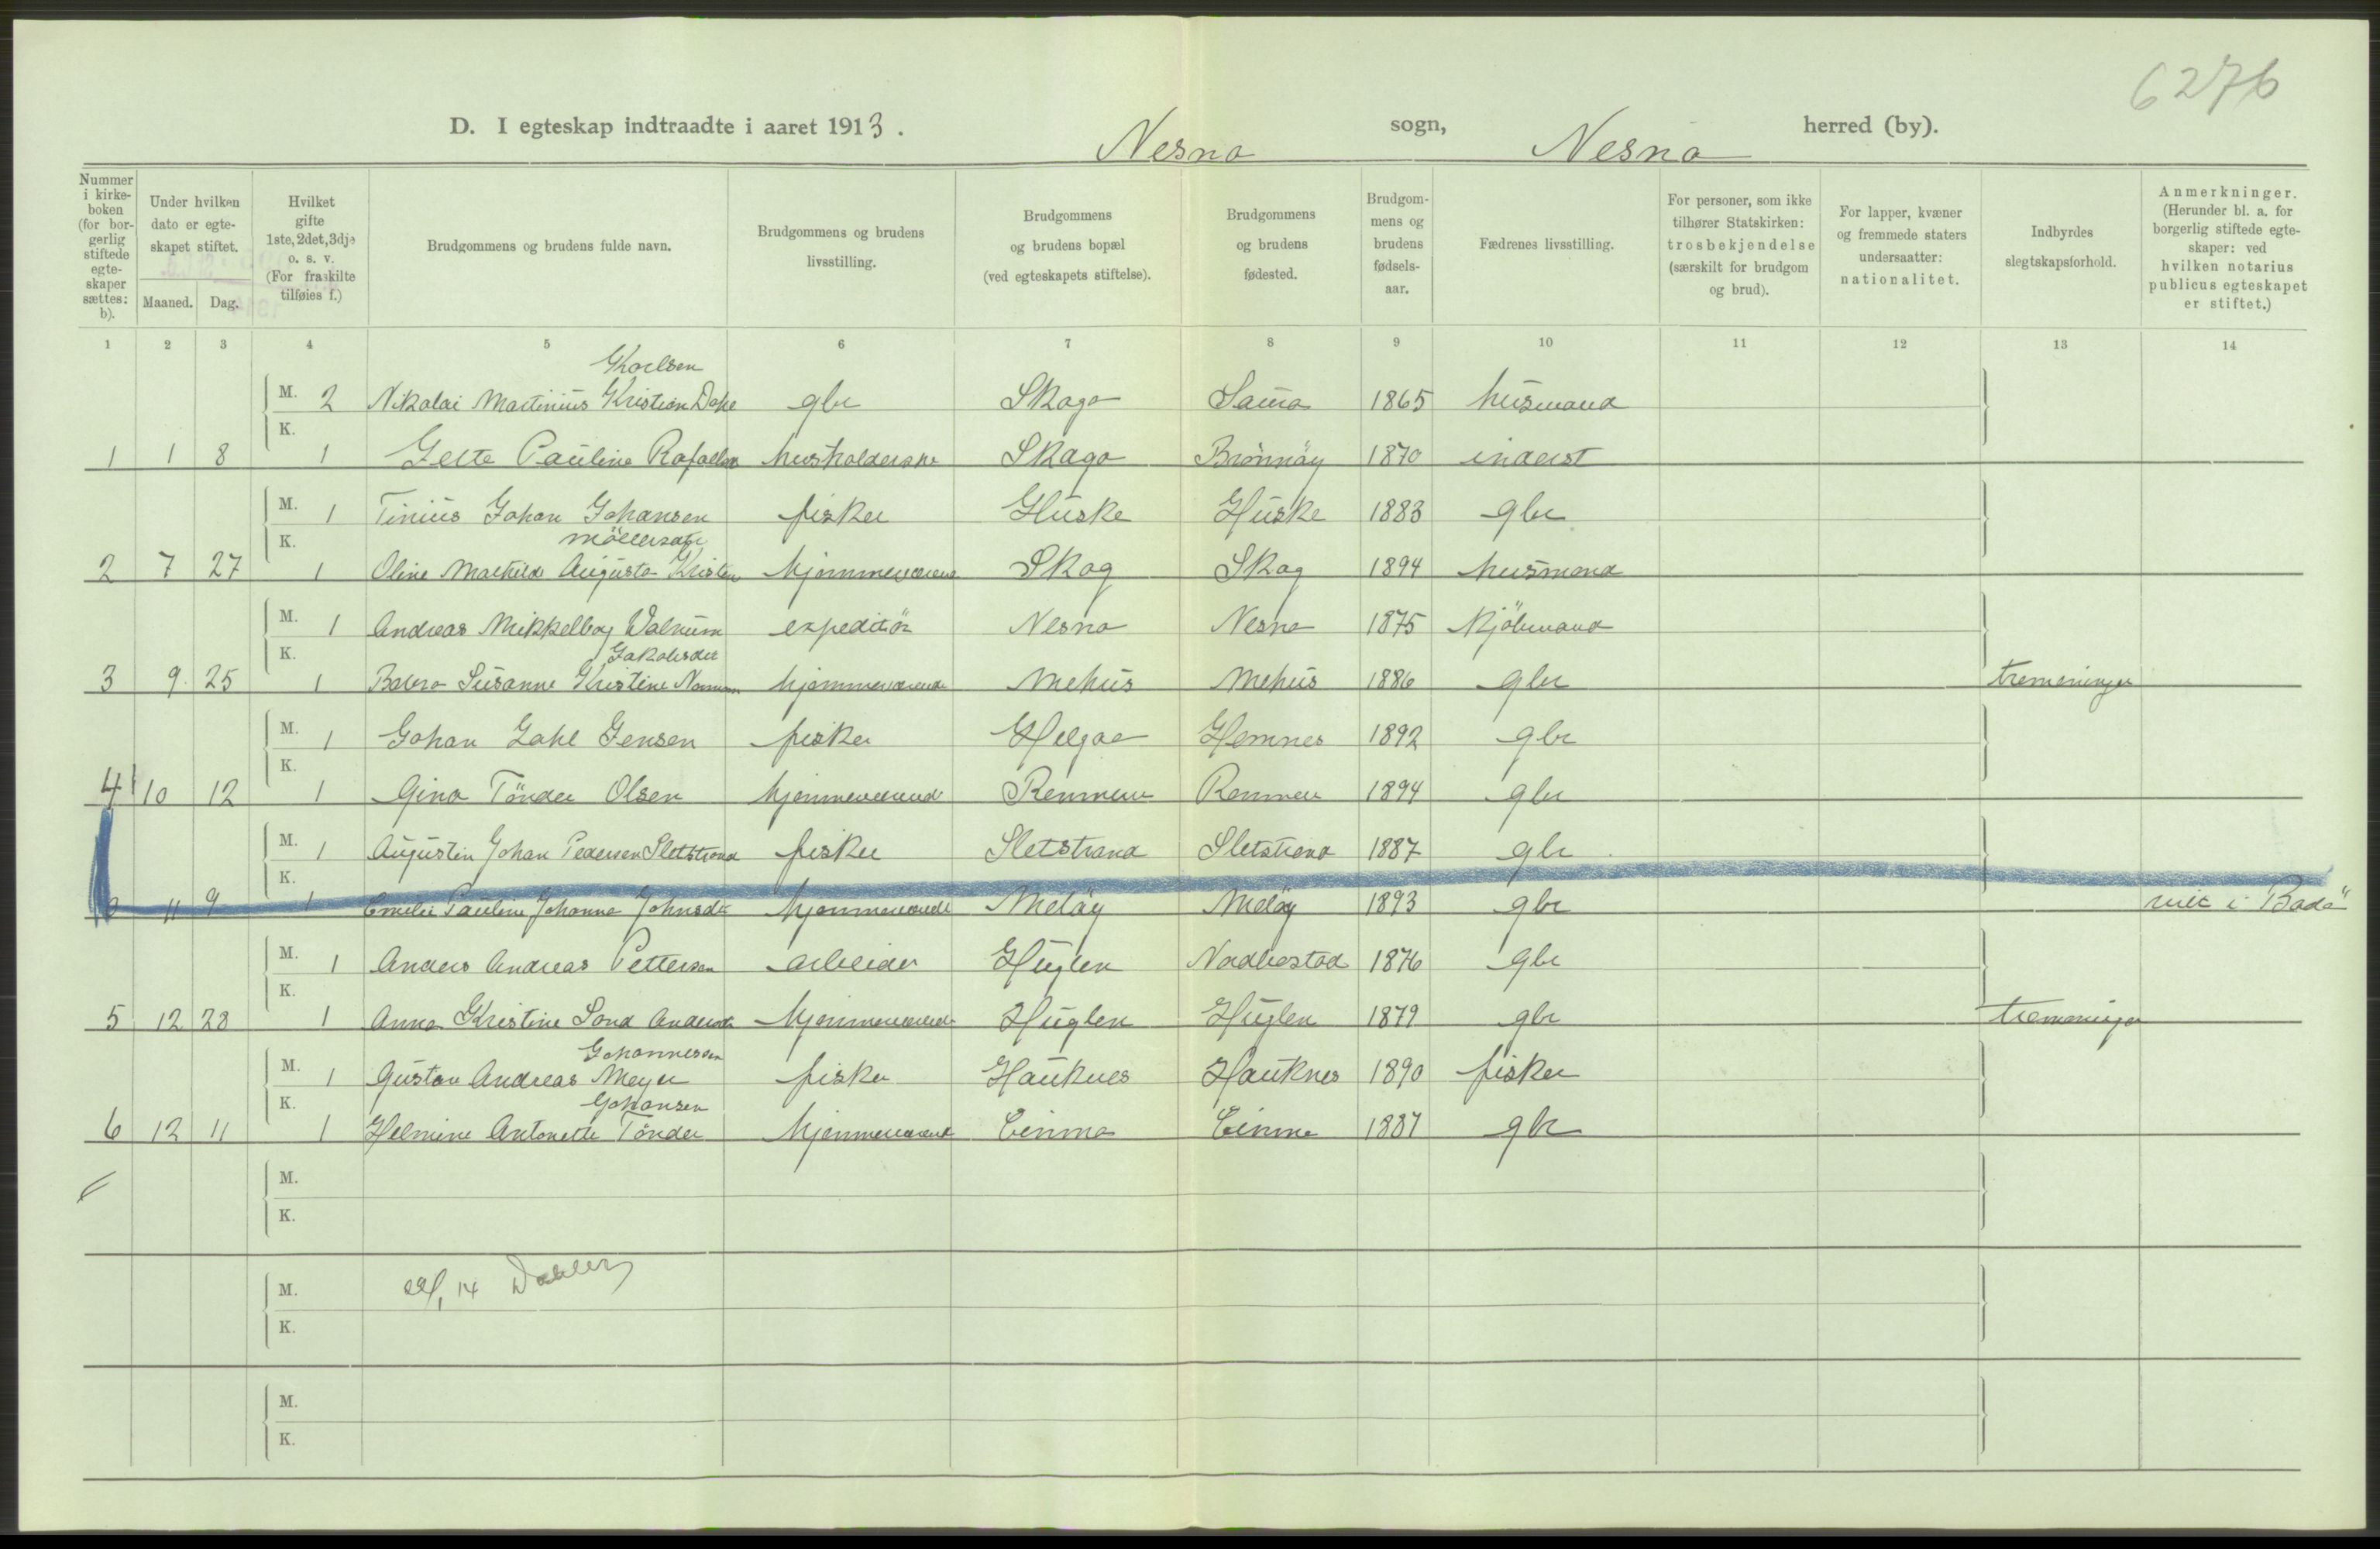 6276
D. I egteskap indtraadte i aaret 1913. Nesna sogn, Nesna herred (by).
Nummer i kirke-boken (for bor-gerlig stiftede egte-skaper sættes: b).
Under hvilken dato er egte-skapet stiftet.
Maaned. Dag.
Hvilket gifte 1ste, 2det, 3dje o. s. v. (For fraskilte tilføies f.)
Brudgommens og brudens fulde navn.
Brudgommens og brudens livsstilling.
Brudgommens og brudens bopæl (ved egteskapets stiftelse).
Brudgommens og brudens fødested.
Brudgom-mens og brudens fødsels-aar.
Fædrenes livsstilling.
For personer, som ikke tilhører Statskirken: trosbekjendelse (særskilt for brudgom og brud).
For lapper, kvæner og fremmede staters undersaatter: nationalitet.
Indbyrdes slegtskapsforhold.
Anmerkninger. (Herunder bl. a. for borgerlig stiftede egte-skaper: ved hvilken notarius publicus egteskapet er stiftet.)
1 2 3 4 5 6 7 8 9 10 11 12 13 14
Karlsen
M. 2 Nikolai Martinius Kristian Dahl gbr Skaga 1865 husmand
K.
1 1 8 1 Jette Pauline Rafaelsen husholderske Skaga Brønnøy 1870 inderst
M. 1 Tinius Johan Johansen fisker Huske Huske 1883 gbr
K.
2 7 27 1 Oline Mathild Augusta Kristen hjemmeværende Skog Skog 1894 husmand
M. 1 Andreas Mikkelborg Walnum expeditör Nesna Nesna 1875 Kjöbmand
K. Jakobsdtr
3 9 25 1 Susanne Kristine hjemmeværende Mehus Mehus 1886 gbr tremeninger
M. 1 Johan Zahl Jensen fisker Helgaa Hemnes 1892 gbr
K.
4 10 12 1 Gina Tönder Olsen hjemmeværende Remmen Remmen 1894 gbr
M. 1 Augustin Johan Pedersen Sletstrand fisker Sletstrand Sletstrand 1887 gbr
K.
11 9 1 Emelie Pauline Johanna Johnsdtr hjemmeværende Melöy Melöy 1893 gbr viet i Bodö
M. 1 Anders Andreas Pettersen arbeider Huglen 1876 gbr
K.
5 12 28 1 Anna Kristine Sand Andersdtr hjemmeværende Huglen Huglen 1879 gbr tremeninger
Johannessen
M. 1 Gustav Andreas Meyer fisker Hauknes Hauknes 1890 fisker
K. Johansen
6 12 11 1 Helmine Antonette Tönder hjemmeværende 1887 gbr
M.
K.
M. 14
K.
M.
K.